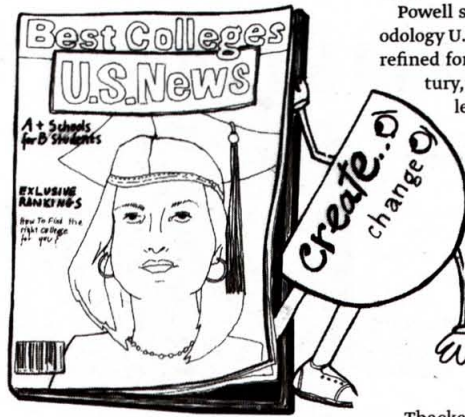 Best Colleges
U.S.News
A + Schools
for B Students
EXLUSIVE
RANKINGS
How To Find the
right college
for you?
create...
change
Powell s
odology U.
refined for
tury,
le
Thacke